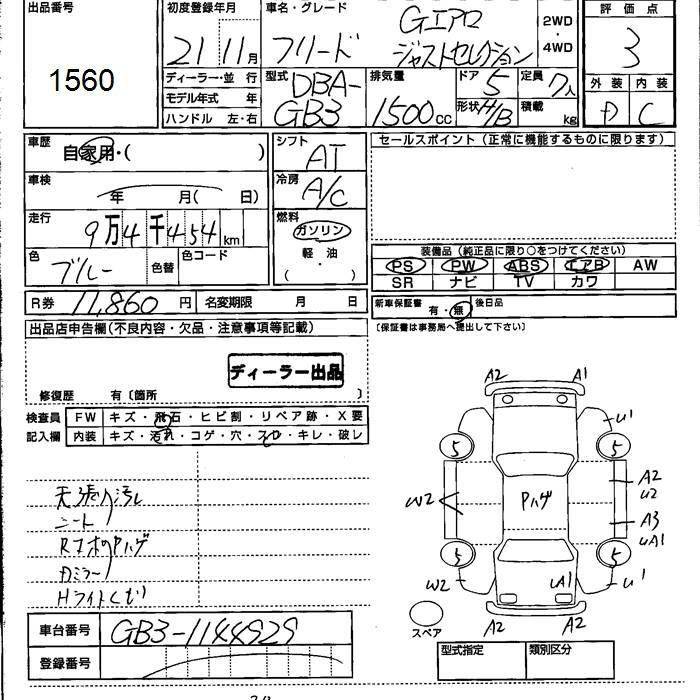 出品番号 1560
初度登録年月 21 11月
車名・グレード フリード Gエアロ ジャストセレクション
2WD・4WD
評価点 3
外装 内装 C
ディーラー・並 行
モデル年式 年
ハンドル 左・右
型式 DBA-GB3
排気量 1500cc
ドア 5 定員 7人
形状 H/B 積載 kg
車歴 自家用・( )
シフト AT
車検 年 月( 日)
冷房 A/C
走行 9万4千454km
燃料 ガソリン 軽・油 ( ・ )
色 ブルー 色替 色コード
R券 11,860円 名変期限 月 日
セールスポイント(正常に機能するものに限ります)
装備品(純正品に限り○をつけてください)
PS PW ABS エアB AW
SR ナビ TV カワ
新車保証書 有・無 後日品
〔保証書は事務局へ提出して下さい〕
出品店申告欄(不良内容・欠品・注意事項等記載)
ディーラー出品
修復歴 有〔箇所 〕
検査員記入欄
FW キズ・飛石・ヒビ割・リペア跡・X要
内装 キズ・汚れ・コゲ・穴・スレ・キレ・破レ
天張り汚レ
シート 〃
Hライトくもり
車台番号 GB3-1144929
登録番号
A2 A1
U1
5 5
W2 Pハゲ A2 U2
A3 UA1
5 5
W2 UA1 U1
A2 A2
スペア
型式指定 類別区分